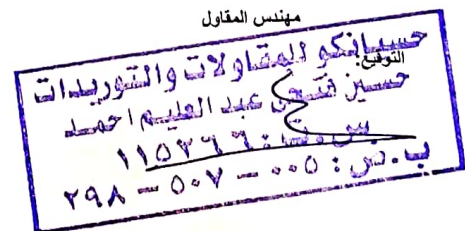 مهندس المقاول
التوقيع:
حسيانكو للمقاولات والتوريدات
حسين فتحى عبد العليم احمد
س.ت: ١١٥٢٦٦
ب.ض: ٠٠٥ - ٥٠٧ - ٢٩٨